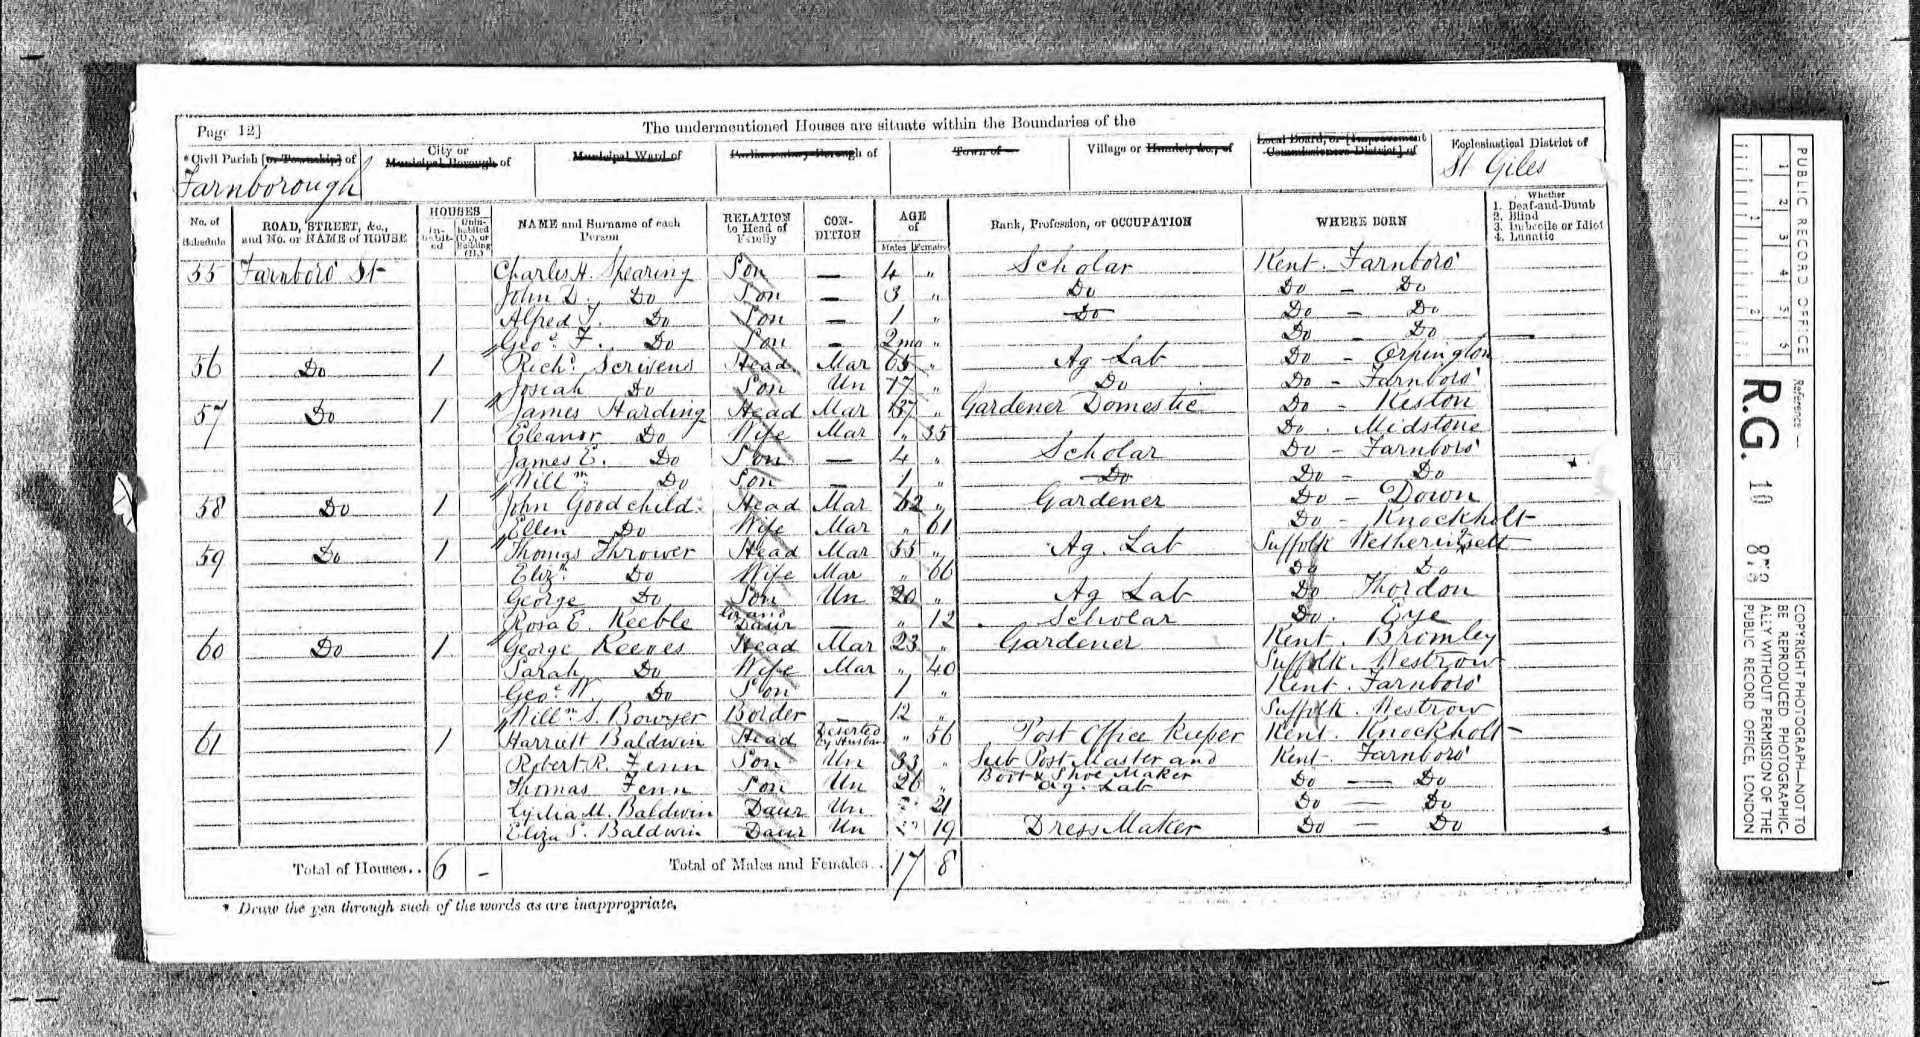 Page 12]
The undermentioned Houses are situate within the Boundaries of the
*Civil Parish [or Township] of
City or Municipal Borough of
Municipal Ward of
Parliamentary Borough of
Town of
Village or Hamlet, &c., of
Local Board, or [Improvement Commissioners District] of
Ecclesiastical District of
Farnborough
St Giles
No. of Schedule
ROAD, STREET, &c., and No. or NAME of HOUSE
HOUSES
Inhabited
Uninhabited (U.), or Building (B.)
NAME and Surname of each Person
RELATION to Head of Family
CONDITION
AGE of
Males
Females
Rank, Profession, or OCCUPATION
WHERE BORN
Whether
1. Deaf-and-Dumb
2. Blind
3. Imbecile or Idiot
4. Lunatic
55 Farnboro' St Charles H. Spearing Son — 4 " Scholar Kent. Farnboro'
John D. Do Son — 3 " Do Do — Do
Alfred J. Do Son — 1 " Do Do — Do
Geo. F. Do Son — 2mo " Do — Do
56 Do 1 Richd Scrivens Head Mar 65 " Ag Lab Do — Orpington
Josiah Do Son Un 17 " Do Do — Farnboro'
57 Do 1 James Harding Head Mar 37 " Gardener Domestic Do — Keston
Eleanor Do Wife Mar " 35 Do . Midstone
James E. Do Son — 4 " Scholar Do — Farnboro'
Willm Do Son — 1 " Do Do — Do
58 Do 1 John Goodchild Head Mar 62 " Gardener Do — Down
Ellen Do Wife Mar " 61 Do — Knockholt
59 Do 1 Thomas Thrower Head Mar 55 " Ag. Lab Suffolk Wetheringsett
Elizth Do Wife Mar " 66 Do Do
George Do Son Un 20 " Ag Lab Do Thordon
Rosa E. Keeble Grand Daur — " 12 Scholar Do. Eye
60 Do 1 George Reeves Head Mar 23 " Gardener Kent. Bromley
Sarah Do Wife Mar " 40 Suffolk. Westrow
Geo. W. Do Son 1 " Kent. Farnboro'
Willm S. Bowyer Border — 12 " Suffolk. Westrow
61 1 Harriett Baldwin Head Deserted by Husban " 56 Post Office Keeper Kent. Knockholt
Robert R. Fenn Son Un 33 " Sub Post Master and Boot & Shoe Maker Kent. Farnboro'
Thomas Fenn Son Un 26 " Ag. Lab Do — Do
Lydia M. Baldwin Daur Un " 21 Do — Do
Eliza S. Baldwin Daur Un " 19 Dress Maker Do — Do
Total of Houses.. 6 - Total of Males and Females.. 17 8
* Draw the pen through such of the words as are inappropriate.
PUBLIC RECORD OFFICE
1 2 3 4 5 6
1 2
Reference:—
R.G. 10 873
COPYRIGHT PHOTOGRAPH—NOT TO
BE REPRODUCED PHOTOGRAPHIC-
ALLY WITHOUT PERMISSION OF THE
PUBLIC RECORD OFFICE, LONDON